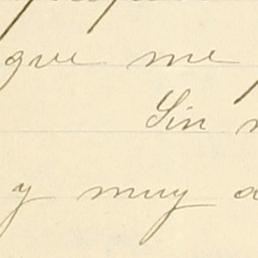 que me
Sin
y muy